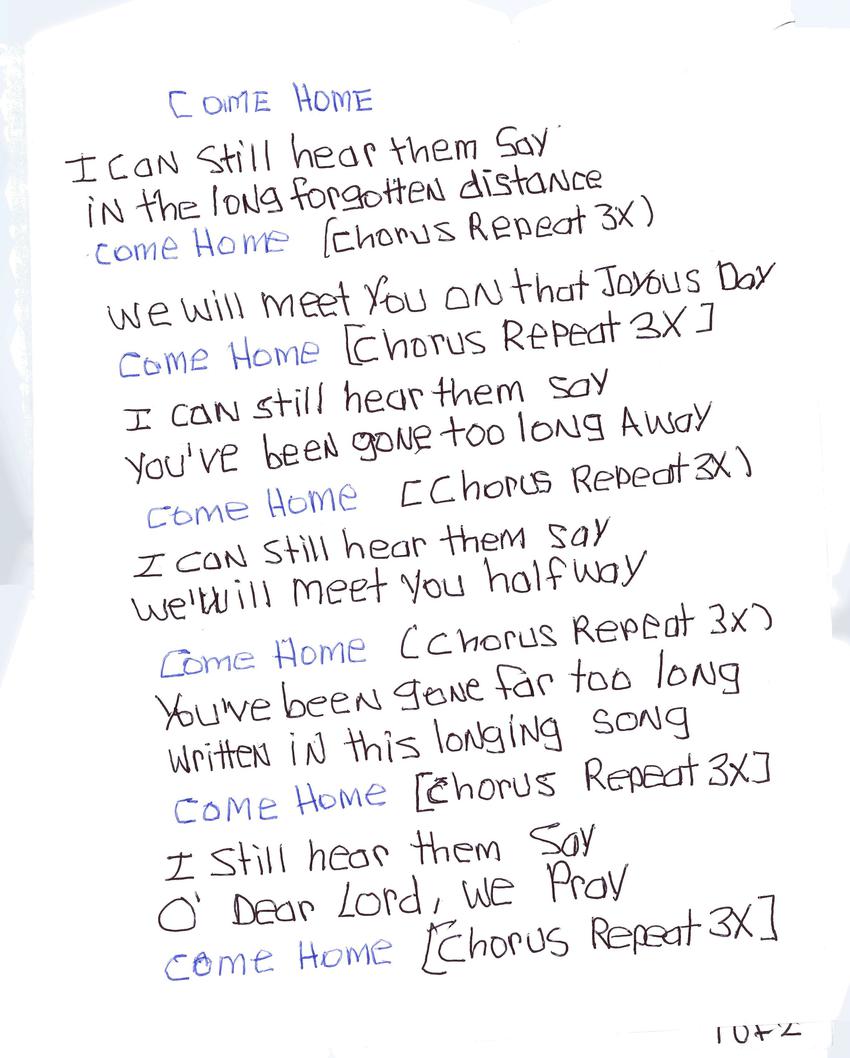 COME HOME
I CAN Still hear them Say
iN the loNg forgotteN distaNce
Come Home [Chorus Repeat 3X)
We will meet You ON that Joyous Day
Come Home [Chorus Repeat 3X]
I CAN still hear them say
You've beeN goNe too loNg AwAy
Come Home [Chorus Repeat 3X)
I CAN still hear them say
We'll Will meet you halfway
Come Home (Chorus Repeat 3X)
You've beeN goNe far too loNg
WritteN iN this loNgiNg soNg
Come Home [Chorus Repeat 3X]
I Still hear them Say
O' Dear Lord, We Pray
Come Home [Chorus Repeat 3X]
1 OF 2